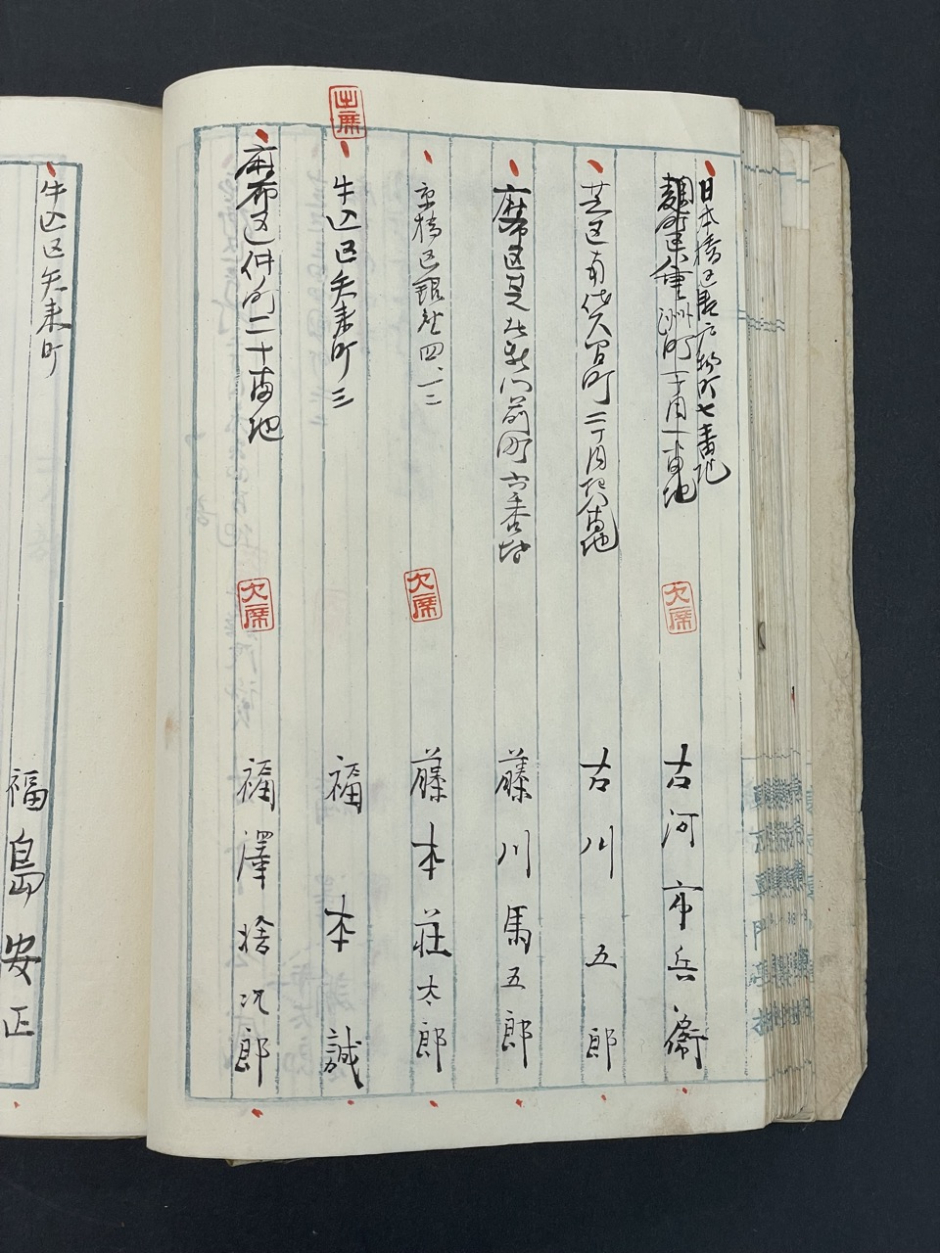 日本橋区瀬戸物町七番地
麹町区八重洲町一丁目一番地
欠席
古河市兵衛
芝区南佐久間町二丁目
番地
古川五郎
麻布区
門前町六番地
藤川馬五郎
京橋区銀座四、一二
欠席
藤本荘太郎
出席
牛込区矢来町三
福本誠
麻布区仲ノ町二十番地
欠席
福澤捨次郎
牛込区矢来町
福島安正